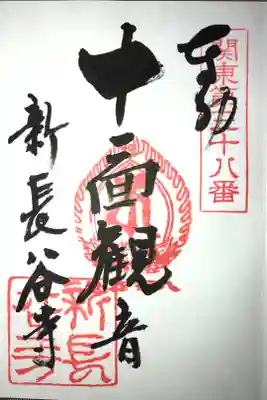 関東第二十八番
奉拝
十一面観音
新長谷寺
新長谷寺